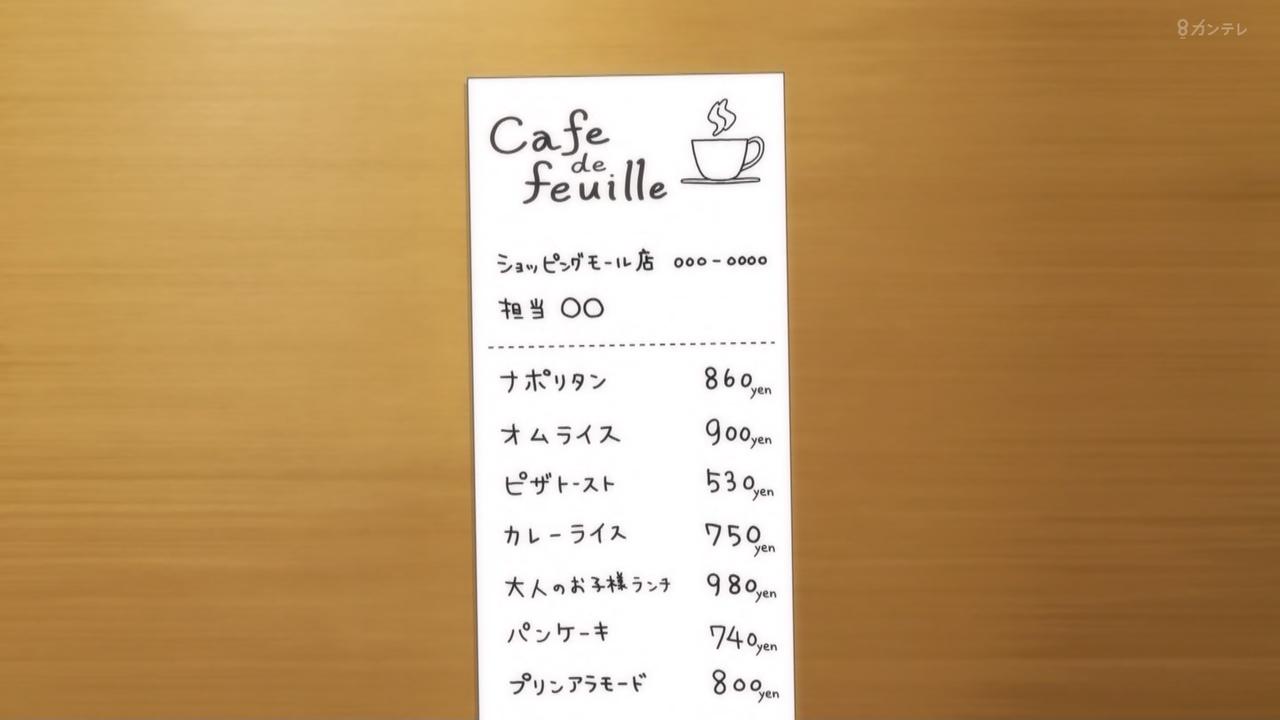 8カンテレ
Cafe
de
feuille
ショッピングモール店 ○○○-○○○○
担当 ○○
ナポリタン 860yen
オムライス 900yen
ピザトースト 530yen
カレーライス 750yen
大人のお子様ランチ 980yen
パンケーキ 740yen
プリンアラモード 800yen